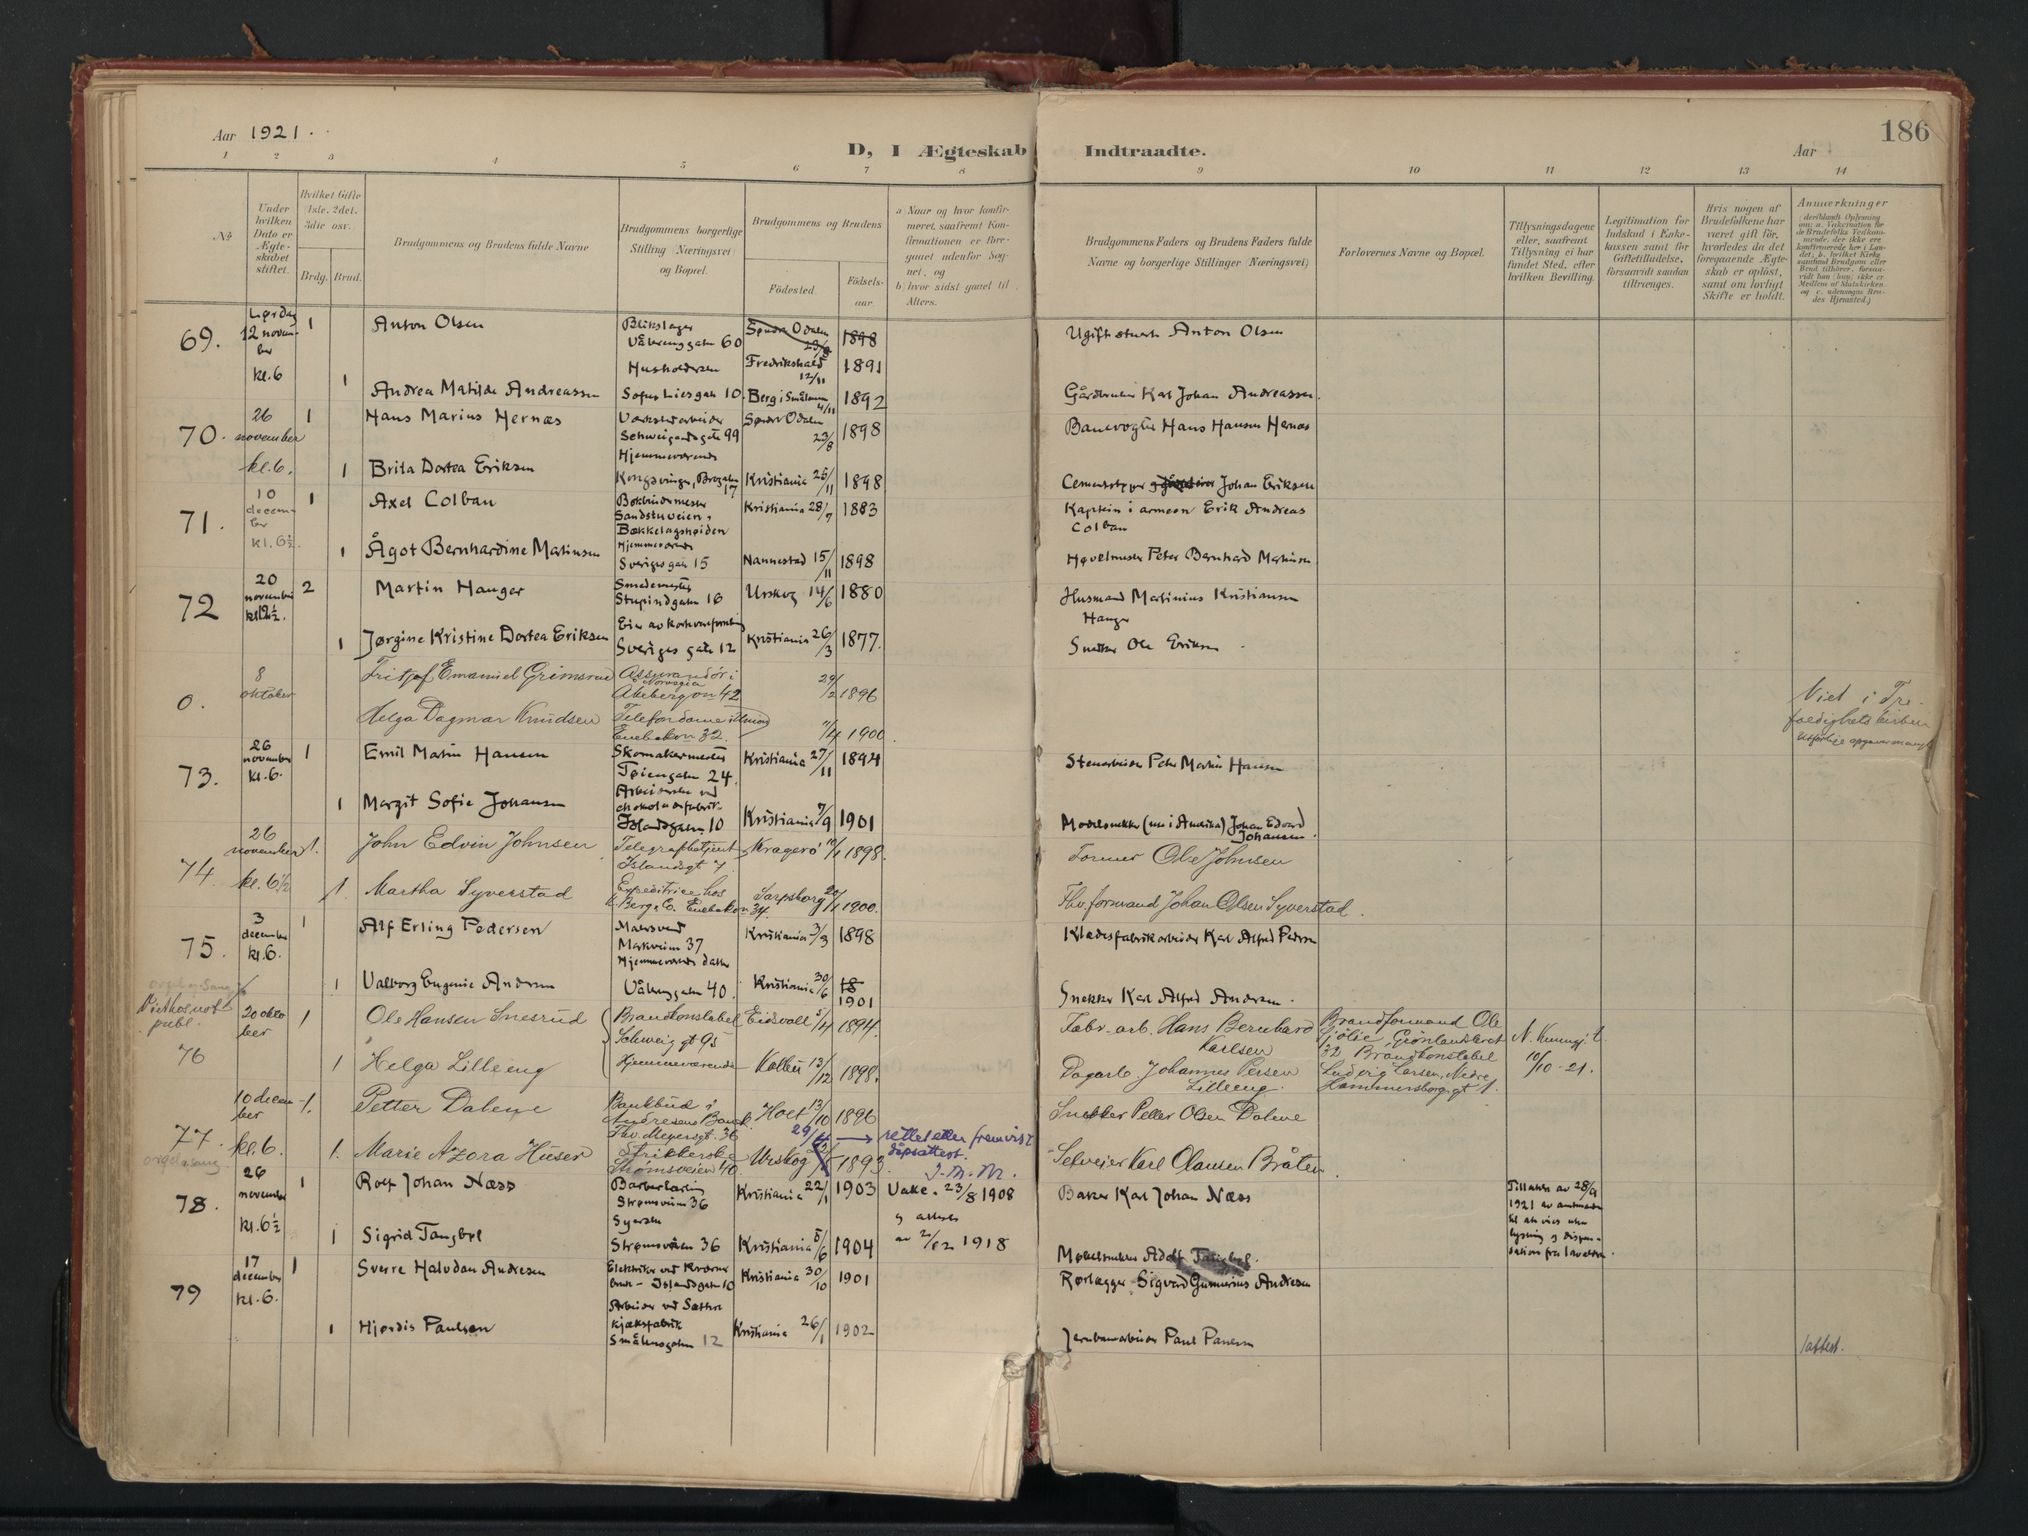 Aar 1921.
D, I Ægteskab Indtraadte.
Aar
186
1 2 3 4 5 6 7 8 9 10 11 12 13 14
No.
Under hvilken Dato er Ægteskabet stiftet.
Hvilket Gifte (1ste, 2det, 3die osv.
Brdg. Brud.
Brudgommens og Brudens fulde Navne
Brudgommens borgerlige Stilling (Næringsvei) og Bopæl.
Brudgommens og Brudens
Fødested.
Fødselsaar.
a) Naar og hvor konfirmeret, saafremt Konfirmationen er foregaaet udenfor Sognet, og
b) hvor sidst gaaet til Alters.
Brudgommens Faders og Brudens Faders fulde Navne og borgerlige Stillinger (Næringsvei)
Forlovernes Navne og Bopæl.
Tillysningsdagene eller, saafremt Tillysning ei har fundet Sted, efter hvilken Bevilling.
Legitimation for Indskud i Enkekassen samt for Giftetilladelse, forsaavidt saadan tiltrænges.
Hvis nogen af Brudefolkene har været gift før, hvorledes da det foregaaende Ægteskab er opløst, samt om lovligt Skifte er holdt.
Anmærkninger
69. Lørdag 12 november kl. 6
1 Anton Olsen Blikslager Vålerenggaten 60 Søndre Odalen 23/8 1898
Fredrikshald 12/11 1891 Ugift Anton Olsen
1 Andrea Matilde Andreassen Husholderske Sofus Liesgate 10. Berg i Smålenene 4/11 1892 Gårdbruker Karl Johan Andreassen.
70. 26 november kl. 6.
1 Hans Marius Hernæs Verkstedarbeider Schweigaardsgate 99 Søndre Odalen 23/8 1898 Banevogter Hans Hansen Hernæs
1 Brita Dortea Eriksen Hjemmeværende Kongsvinger, Brogaten 17 Kristiania 25/11 1898 Johan Eriksen
71. 10 december kl. 6½.
1 Axel Colban Bokbindermester Sandstuveien, Bækkelagshøiden Kristiania 28/7 1883 Kaptein i armeen Erik Andreas Colban
1 Ågot Bernhardine Martinsen Hjemmeværende Sverigesgate 15 Nannestad 15/11 1898 Peter Bernhard Martinsen
72 20 november kl. 12½.
2 Martin Hanger Smedemester Stupindgaten 16 Urskog 14/6 1880 Husmand Martinius Kristiansen Hanger
1 Jørgine Kristine Dortea Eriksen Eier av Sveriges gate 12 Kristiania 26/3 1877. Snekker Ole Eriksen
0. 8 oktober
Fritjof Emanuel Grimsrud Assurandör i Norvegia Akebergvn 42 29/2 1896
Helga Dagmar Knudsen Telefondame Enebakvn 32. 11/4 1900.
Viet i Trefoldighets kirken
73. 26 november kl. 6.
1 Emil Martin Hansen Skomakermester Tøiengaten 24. Kristiania 27/11 1894 Stenarbeider Peter Martin Hansen
1 Margit Sofie Johansen Arbeiderske ved chokoladefabrik. Islandsgaten 10 Kristiania 7/9 1901 Modelsnekker (nu i Amerika) Johan Edvard Johansen.
74. 26 november kl. 6½
1. John Edvin Johnsen Telegrafbetjent Islandsgt 7 Kragerö 1898. Former Ole Johnsen
1. Martha Syverstad Expeditrice hos Berg & Co. Enebakvn 34. Sarpsborg 20/1 1900. Fhv. formand Johan Olsen Syverstad.
75. 3 december kl. 6.
1 Alf Erling Pedersen Markveien 37 Kristiania 3/9 1898 Klædesfabrikarbeider Karl Alfred Pedersen
1 Valborg Eugenie Andersen Hjemmeværende datter Vålerenggaten 40. Kristiania 30/6 18 1901 Snekker Karl Alfred Andersen.
orgel. Sang
Viet hos not. publ.
76 20 oktober
1 Ole Hansen Snesrud Brandkonstabel Schweig gt 95 Eidsvoll 5/4 1894. Fabr. arb. Hans Bernhard Karlsen Brandformand Ole Gjölie, Grönlandsleret 32 N. Kunngj. t. 10/10-21.
1 Helga Lilleeng Hjemmeværende Kolbu 13/12 1898. Dagarb. Johannes Persen Lilleeng. Brandkonstabel Ludvig Larsen, Nedre Hammersborggt 1.
77. 10 december kl. 6.
1. Petter Dalene Bankbud i Andresens Bank. Thv. Meyersgt. 36 Holt 13/10 1896 Snekker Petter Olsen Dalene
1. Marie Azora Huser Strikkerske Strömsveien 40. Urskog 1893. Selveier Karl Olausen Bråten.
29/4 → rettet etter fremvist dåpsattest. J.M.M.
orgel. sang.
78. 26 november kl. 6½
1 Rolf Johan Næss Barberlærling Strømsveien 36 Kristiania 22/1 1903 Vakc. 23/8 1908 Baker Karl Johan Næss
Tillatelse av 28/9 1921 av amtmanden til at vies uten lysning og dispensation fra lavalder.
1 Sigrid Tangbøl Syerske Strømsveien 36 Kristiania 5/6 1904 og attest av 2/12 1918 Møbelsnekker Adolf Tangbøl.
79 17 december kl. 6.
1 Sverre Halvdan Andresen Elektriker ved Kværner bruk - Islandsgaten 10 Kristiania 30/10 1901 Rørlægger Sigvard Gunnerius Andresen
1 Hjørdis Paulsen Arbeider ved Sætre kjæksfabrik Smålensgaten 12 Kristiania 26/1 1902 Jernbanearbeider Paul Paulsen
1 attest.